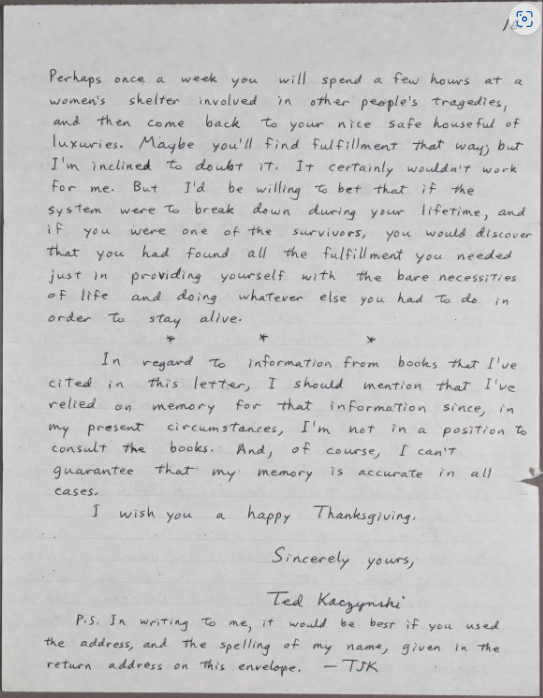 Perhaps once a week you will spend a few hours at a
women's shelter involved in other people's tragedies,
and then come back to your nice safe houseful of
luxuries. Maybe you'll find fulfillment that way, but
I'm inclined to doubt it. It certainly wouldn't work
for me. But I'd be willing to bet that if the
system were to break down during your lifetime, and
if you were one of the survivors, you would discover
that you had found all the fulfillment you needed
just in providing yourself with the bare necessities
of life and doing whatever else you had to do in
order to stay alive.
* * *
In regard to information from books that I've
cited in this letter, I should mention that I've
relied on memory for that information since, in
my present circumstances, I'm not in a position to
consult the books. And, of course, I can't
guarantee that my memory is accurate in all
cases.
I wish you a happy Thanksgiving.
Sincerely yours,
Ted Kaczynski
P.S. In writing to me, it would be best if you used
the address, and the spelling of my name, given in the
return address on this envelope. — TJK